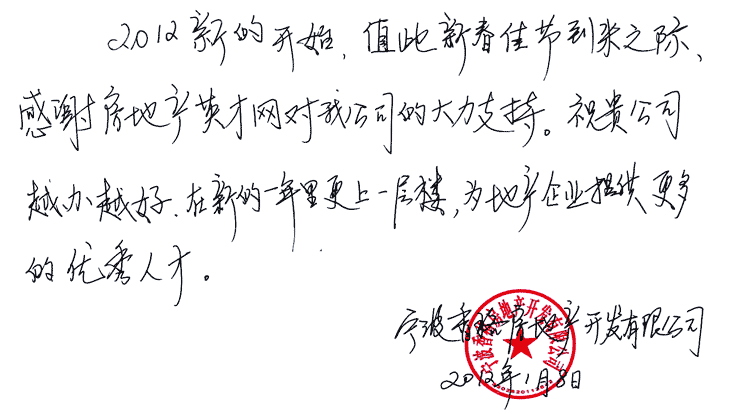 2012新的开始，值此新春佳节到来之际、
感谢房地产英才网对我公司的大力支持。祝贵公司
越办越好．在新的一年里更上一层楼，为地产企业提供更多
的优秀人才。
宁波香格房地产开发有限公司
2012年1月8日